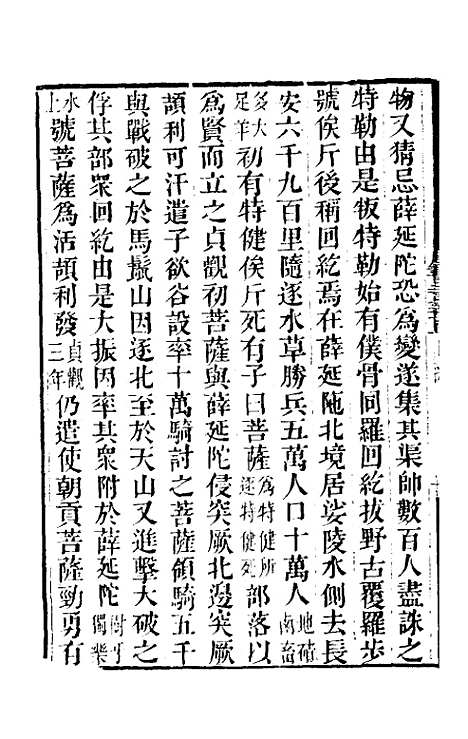 物又猜忌薛延陀恐爲變遂集其渠帥數百人盡誅之
特勒由是叛特勒始有僕骨同羅回紇拔野古覆羅步
號俟斤後稱回紇焉在薛延陁北境居娑陵水側去長
安六千九百里隨逐水草勝兵五萬人口十萬人地磧鹵畜
多大足羊初有特健俟斤死有子曰菩薩爲特健所逐特健死部落以
爲賢而立之貞觀初菩薩與薛延陀侵突厥北邊突厥
頡利可汗遣子欲谷設率十萬騎討之菩薩領騎五千
與戰破之於馬鬣山因逐北至於天山又進擊大破之
俘其部衆回紇由是大振因率其衆附於薛延陀樹牙獨樂
水上號菩薩爲活頡利發貞觀三年仍遣使朝貢菩薩勁勇有